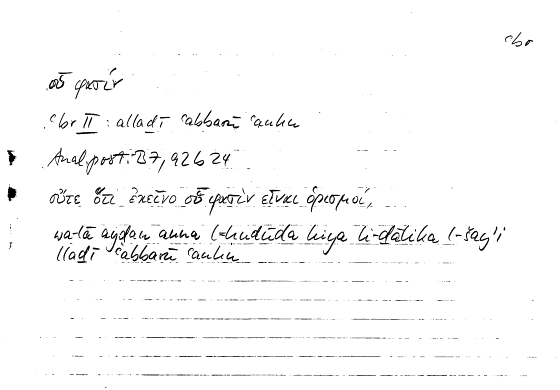 ʿbr
οὗ φασίν
ʿbr II : alladī ʿabbarū ʿanhu
Anal. post. B7, 92b24
οὔτε ὅτι ἐκεῖνο οὗ φασὶν εἶναι ὁρισμοί,
wa-lā ayḍan anna l-ḥudūda hiya li-ḏālika l-šayʾi
lladī ʿabbarū ʿanhu